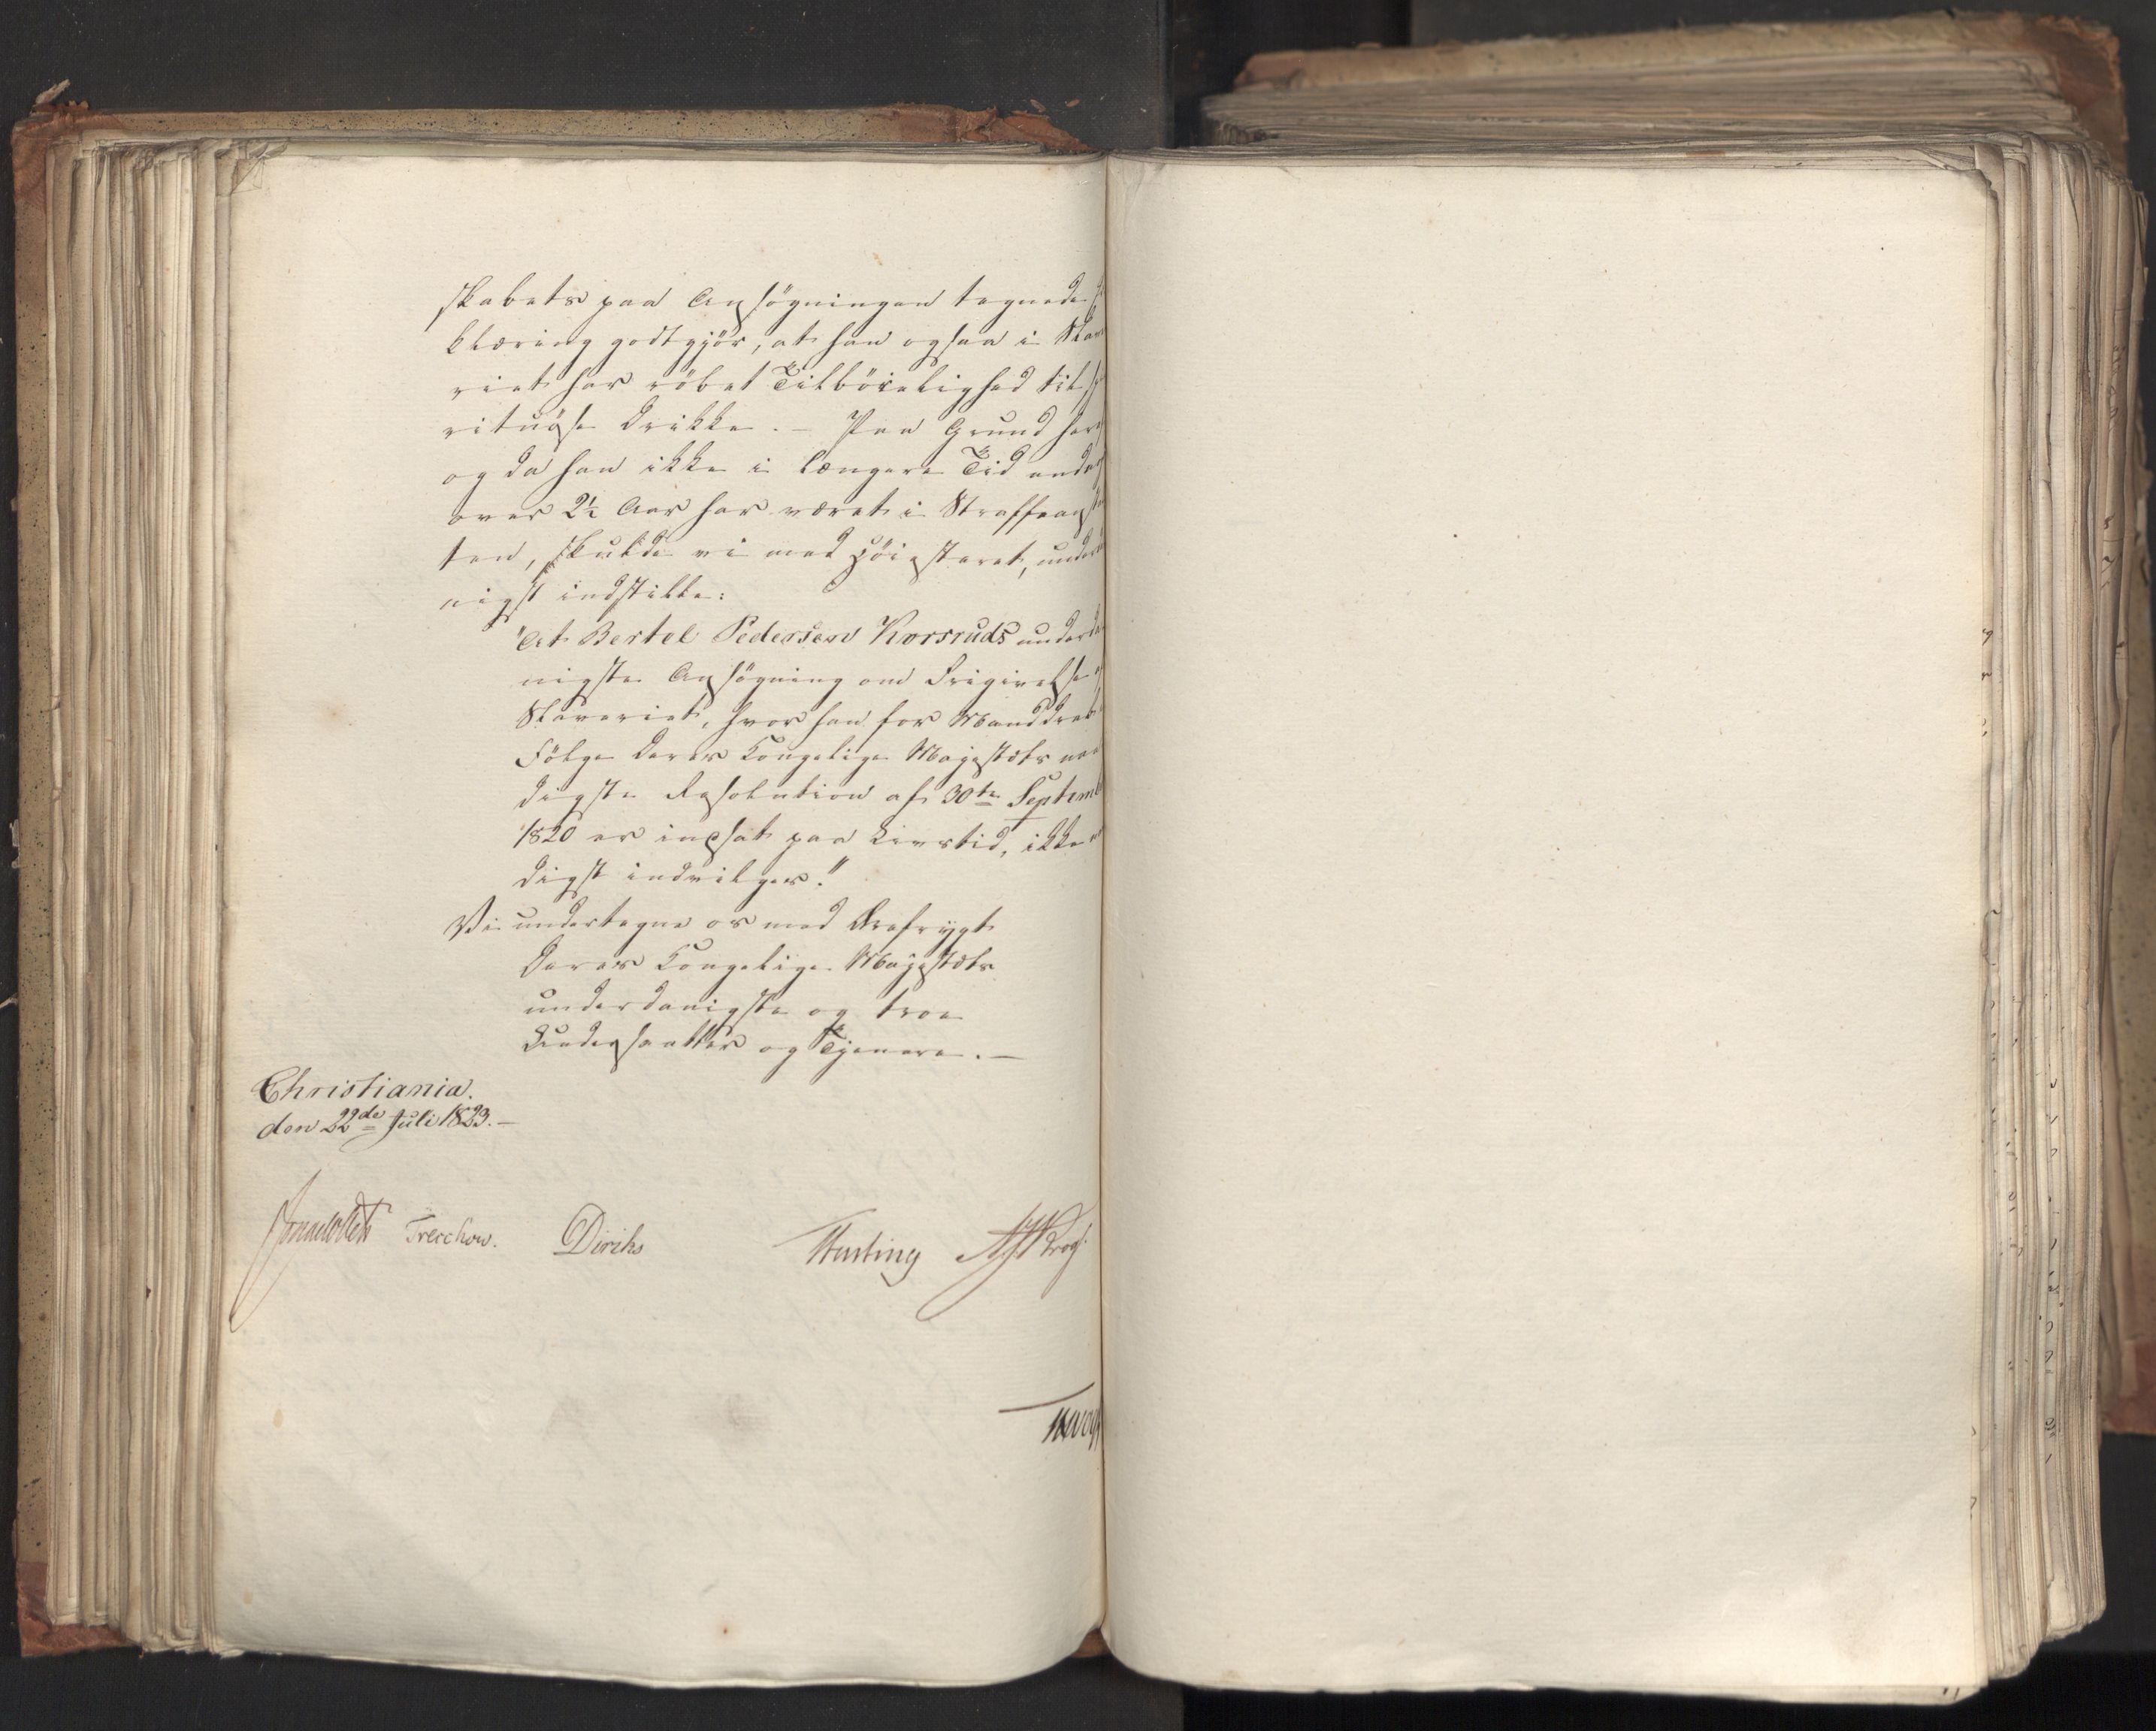 skabets paa Ansøgningen tegnede
klæring godtgjør, at han ogsaa i Sla
riet har røbet Tilbøielighed til
rituøse Drikke. – Paa Grund her
og da han ikke i længere Tid end
over 2½ Aar har været i Straffeanst
ten, skulde vi med Høiesteret, under
nigst indstille:
"At Bertel Pedersen Korsruds underda
nigste Ansøgning om Frigivelse
Slaveriet, hvor han for Manddrab
Følge Deres Kongelige Majestæts naa
digste Resolution af 30te Septemb
1820 er indsat paa Livstid, ikke
digst indvilges."
Vi undertegne os med Ærefrygt
Deres Kongelige Majestæts
underdanigste og troe
Undersaatter og Tjenere. —
Christiania.
den 22de Juli 1823. —
Sommelhielm Treschow. Diriks Fasting Krog.